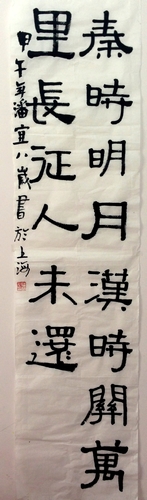 秦時明月漢時關萬
里長征人未還
甲午年潘宜八歲書於上海